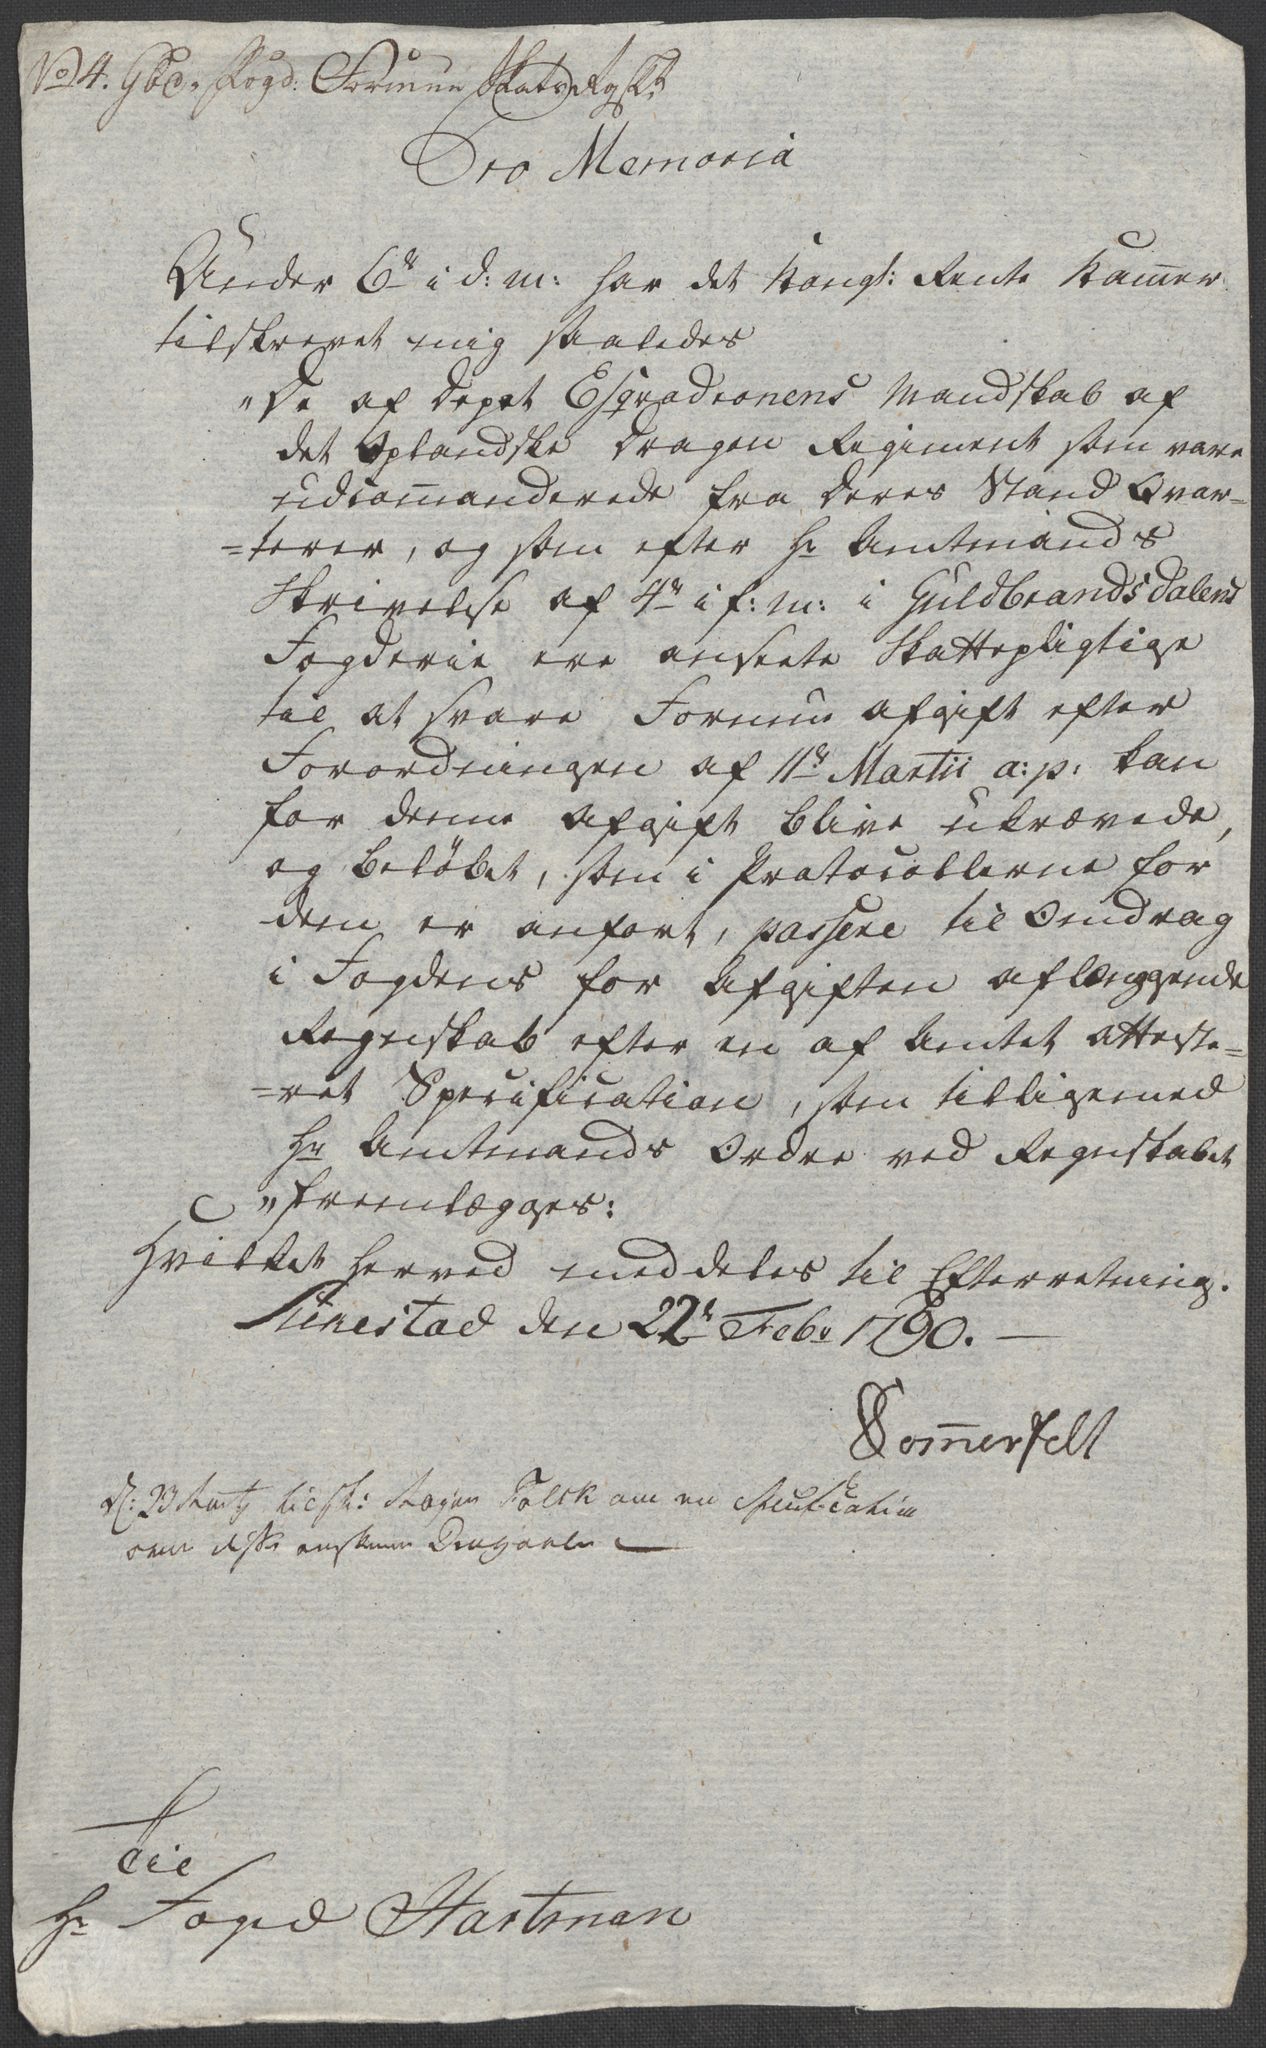 No 4. Gbd. Fogd: Formue Skatts Rgsk.
Pro Memoria
Under 6te i d: m: har det Kongl: Rente Kammer
tilskrevet mig saaledes
"De af Depot Esqvadronens Mandskab af
det Oplandske Dragon Regiment som vare
udcommanderede fra deres Stand Qvar-
=terer, og som efter Hr Amtmands
Skrivelse af 4de i f: m: i Guldbrandsdalens
Fogderie ere ansette Skattepligtige
til at svare Formue afgift efter
Forordningen af 11te Martii a: p: kan
for denne Afgift blive ukrævede,
og beløbet, som i Protocollerne for
dem er anført, passere til Omdrag
i Fogdens for Afgiften aflæggende
Regnskab efter en af Amtet atteste=
=ret Specification, som tilligemed
Hr Amtmands Ordre ved Regnskabet
"fremlægges:
Hvilket herved meddeles til Efterretning.
Steenstad den 22de Febr 1790. —
Sommerfelt
d: 23 Marty tilsk: Major Falck om en Specification
over disse Dragouner —
Til
Hr Foged Hartman